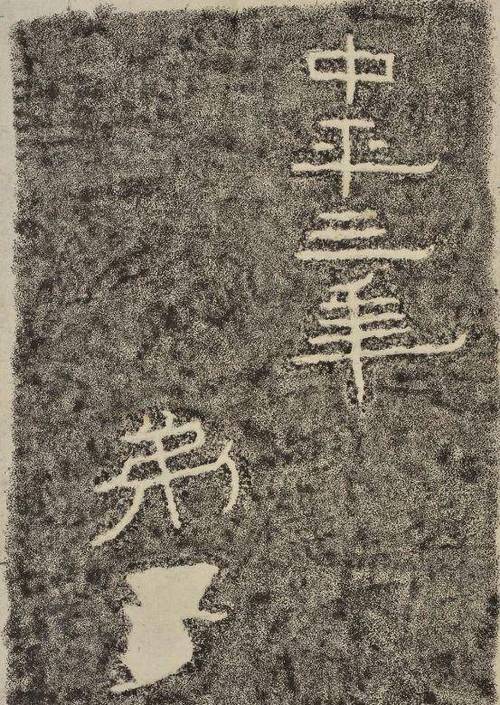 中平三年
弟